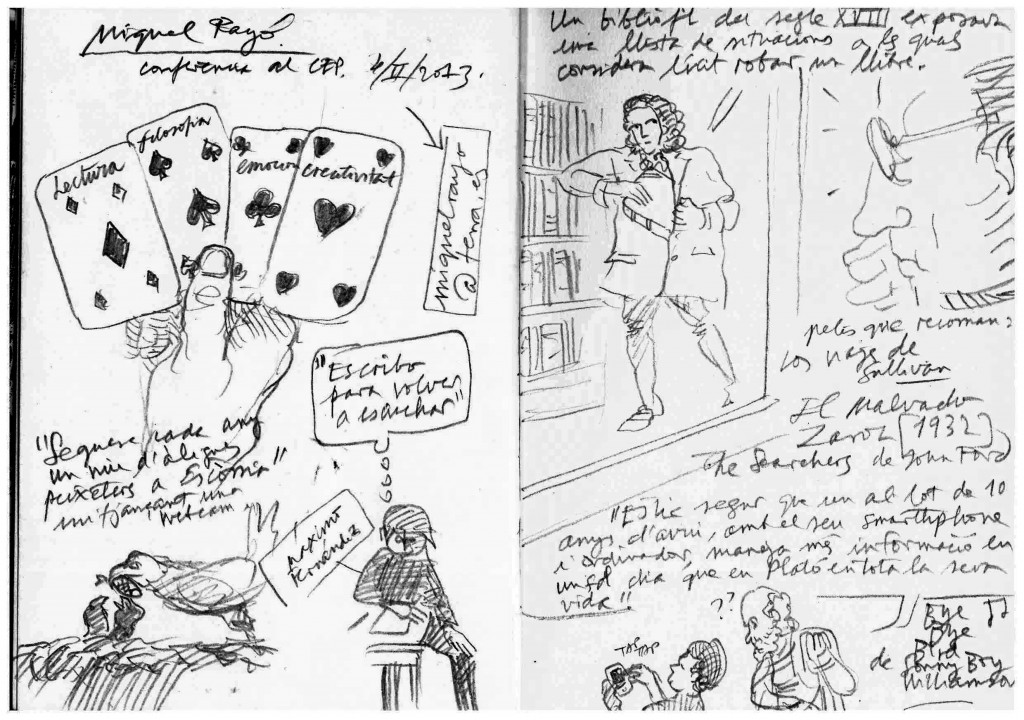 Miquel Rayó.
conferencia al CEP. 4/II/2013.
Lectura
filosofia
emoció
creativitat
miquelrayo
@ terra.es
"Escribo
para volver
a escuchar"
"Segueix cada any
un niu d'àligues
peixeters a Estònia"
mitjançant una
webcam
maximo
Fernández
Un bibliòfil del segle XVIII exposava
una llista de situacions a les quals
considera lícit robar un llibre.
pelis que recoman:
Los viajes de
Sullivan
El Malvado
Zaroz [1932]
The Searchers de John Ford
"Estic segur que un al·lot de 10
anys d'avui, amb el seu smarthphone
i ordinador, maneja més informació en
un sol dia que en Plató en tota la seva
vida"
??
TAP TAP
Bye
Bye
Bird
de Sonny Boy
Williamson